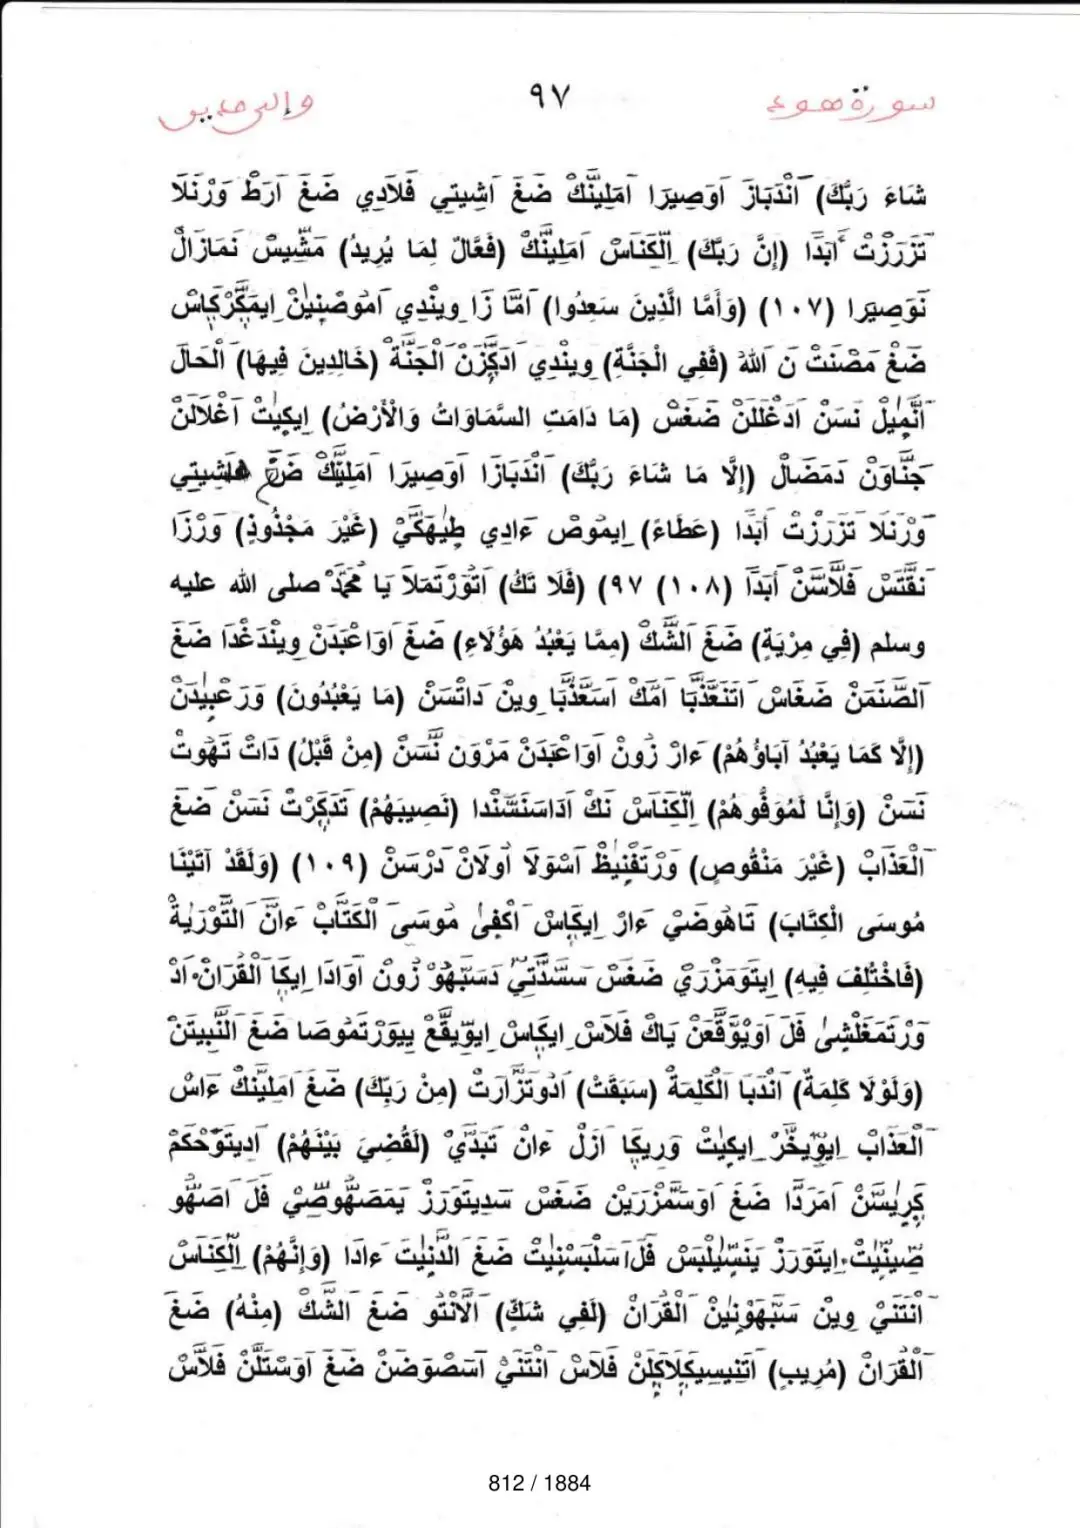 سورة هود ٩٧ وإلى مدين
شَاءَ رَبُّكَ) اَنْدَبَازَ اَوَصِيرَا اَمَلِينَّكْ ضَغَ اَشِيتِي فَلَادِي ضَغَ اَرَطْ وَرْنَلَا
تَزَرَزْتْ اَبَدًا (إِنَّ رَبَّكَ) اِلْكَنَاسْ اَمَلِينَّكْ (فَعَّالٌ لِمَا يُرِيدُ) مَشِّيسْ نَمَازَالْ
نَوَصِيرَا (١٠٧) (وَأَمَّا الَّذِينَ سَعِدُوا) اَمَّا زَا وِينْدِي اَمُوصْنِينْ اِيمَكَّرْكَاسْ
ضَغْ مَصْنَتْ نَ اللهُ (فَفِي الْجَنَّةِ) وِينْدِي اَدَكِّزَنْ اَلْجَنَّةْ (خَالِدِينَ فِيهَا) اَلْحَالَ
اَنَّمِيلْ نَسَنْ اَدَغْلَلَنْ ضَغَسْ (مَا دَامَتِ السَّمَاوَاتُ وَالْأَرْضُ) اِيكِيتْ اَغْلَالَنْ
جَنَّاوَنْ دَمَضَالْ (إِلَّا مَا شَاءَ رَبُّكَ) اَنْدَبَازَا اَوَصِيرَا اَمَلِينَّكْ
وَرْنَلَا تَزَرَزْتْ أَبَدًا (عَطَاءً) اِيمُوصْ ءَادِي طِيهَكِّيْ (غَيْرَ مَجْذُوذٍ) وَرْزَا
نَقَّتَسْ فَلَّاسَنْ أَبَدًا (١٠٨) ٩٧) (فَلَا تَكُ) اَتَوَّرْتَمَلَا يَا مُحَمَّدْ صلى الله عليه
وسلم (فِي مِرْيَةٍ) ضَغَ اَلشَّكْ (مِمَّا يَعْبُدُ هَؤُلَاءِ) ضَغَ اَوَاعْبَدَنْ وِينْدَغْدَا ضَغَ
اَلصَّنَمَنْ ضَغَاسْ اَتَنَعَذَّبَا اَمَّكْ اَسَعَذَّبَا وِينْ دَاتْسَنْ (مَا يَعْبُدُونَ) وَرَعْبِيدَنْ
(إِلَّا كَمَا يَعْبُدُ آبَاؤُهُمْ) ءَارْ زُونْ اَوَاعْبَدَنْ مَرْوَن نَّسَنْ (مِنْ قَبْلُ) دَاتْ تَهُوتْ
نَسَنْ (وَإِنَّا لَمُوَفُّوهُمْ) اِلْكَنَاسْ نَكْ اَدَاسَنَسَّنْدَا (نَصِيبَهُمْ) تَدَكِّرْتْ نَسَنْ ضَغَ
اَلْعَذَابْ (غَيْرَ مَنْقُوصٍ) وَرْتَفْنِيظْ اَسْوَلَا اُولَانْ دَرْسَنْ (١٠٩) (وَلَقَدْ آتَيْنَا
مُوسَى الْكِتَابَ) تَاهُوضَيْ ءَارْ اِيكَاسْ اَكْفِى مُوسَى اَلْكَتَّابْ ءَانْ اَلتَّوْرَيَةْ
(فَاخْتُلِفَ فِيهِ) اِيتَومَزْرَيْ ضَغَسْ سَسَّدَّتِي دَسَبَّهُوْ زُونْ اَوَادَا اِيكَا اَلْقُرَانْ اَدْ
وَرْتَمَغْلَشِى فَلْ اَوَيْوَّقَعَنْ يَاكْ فَلَاسْ اِيكَاسْ اِيوَّيقَّعْ يِيوَرْتَمُوصَا ضَغَ اَلنَّبِيتَنْ
(وَلَوْلَا كَلِمَةٌ) اَنْدَبَا اَلْكَلِمَةْ (سَبَقَتْ) اَدُوتَزَّارَتْ (مِنْ رَبِّكَ) ضَغَ اَمَلِينَّكْ ءَاسْ
اَلْعَذَابْ اِيوَّيخَّرْ اِيكِيتْ وَرِيكَا اَزَلْ ءَانْ تَبَدَّيْ (لَقُضِيَ بَيْنَهُمْ) اَدِيتَوَحْكَمْ
كَرِيسَّنْ اَمَرَدَا ضَغَ اَوَسَمَّزْرَيَنْ ضَغَسْ سَدِيتَورَزْ يَمَصَهُوصِّيْ فَلْ اَصَهُّو
صِّينِيتْ اِيتَورَزْ يَنَسِّيلْبَسْ فَلْ اَسَلْبَسْنِيتْ ضَغَ اَلدُّنِيتَ ءَادَا (وَإِنَّهُمْ) اِلْكَنَاسْ
اَنْتَنَيْ وِينْ سَبَّهَوْنِينْ اَلْقُرَانْ (لَفِي شَكٍّ) اَلَّانْتُو ضَغَ اَلشَّكْ (مِنْهُ) ضَغَ
اَلْقُرَانْ (مُرِيبٍ) اَتَنِيسِيكَلَاكَلَنْ فَلَاسْ اَنْتَنَيْ اَسَصْوَضَنْ ضَغَ اَوَسْتَلَّنْ فَلَّاسْ
812 / 1884